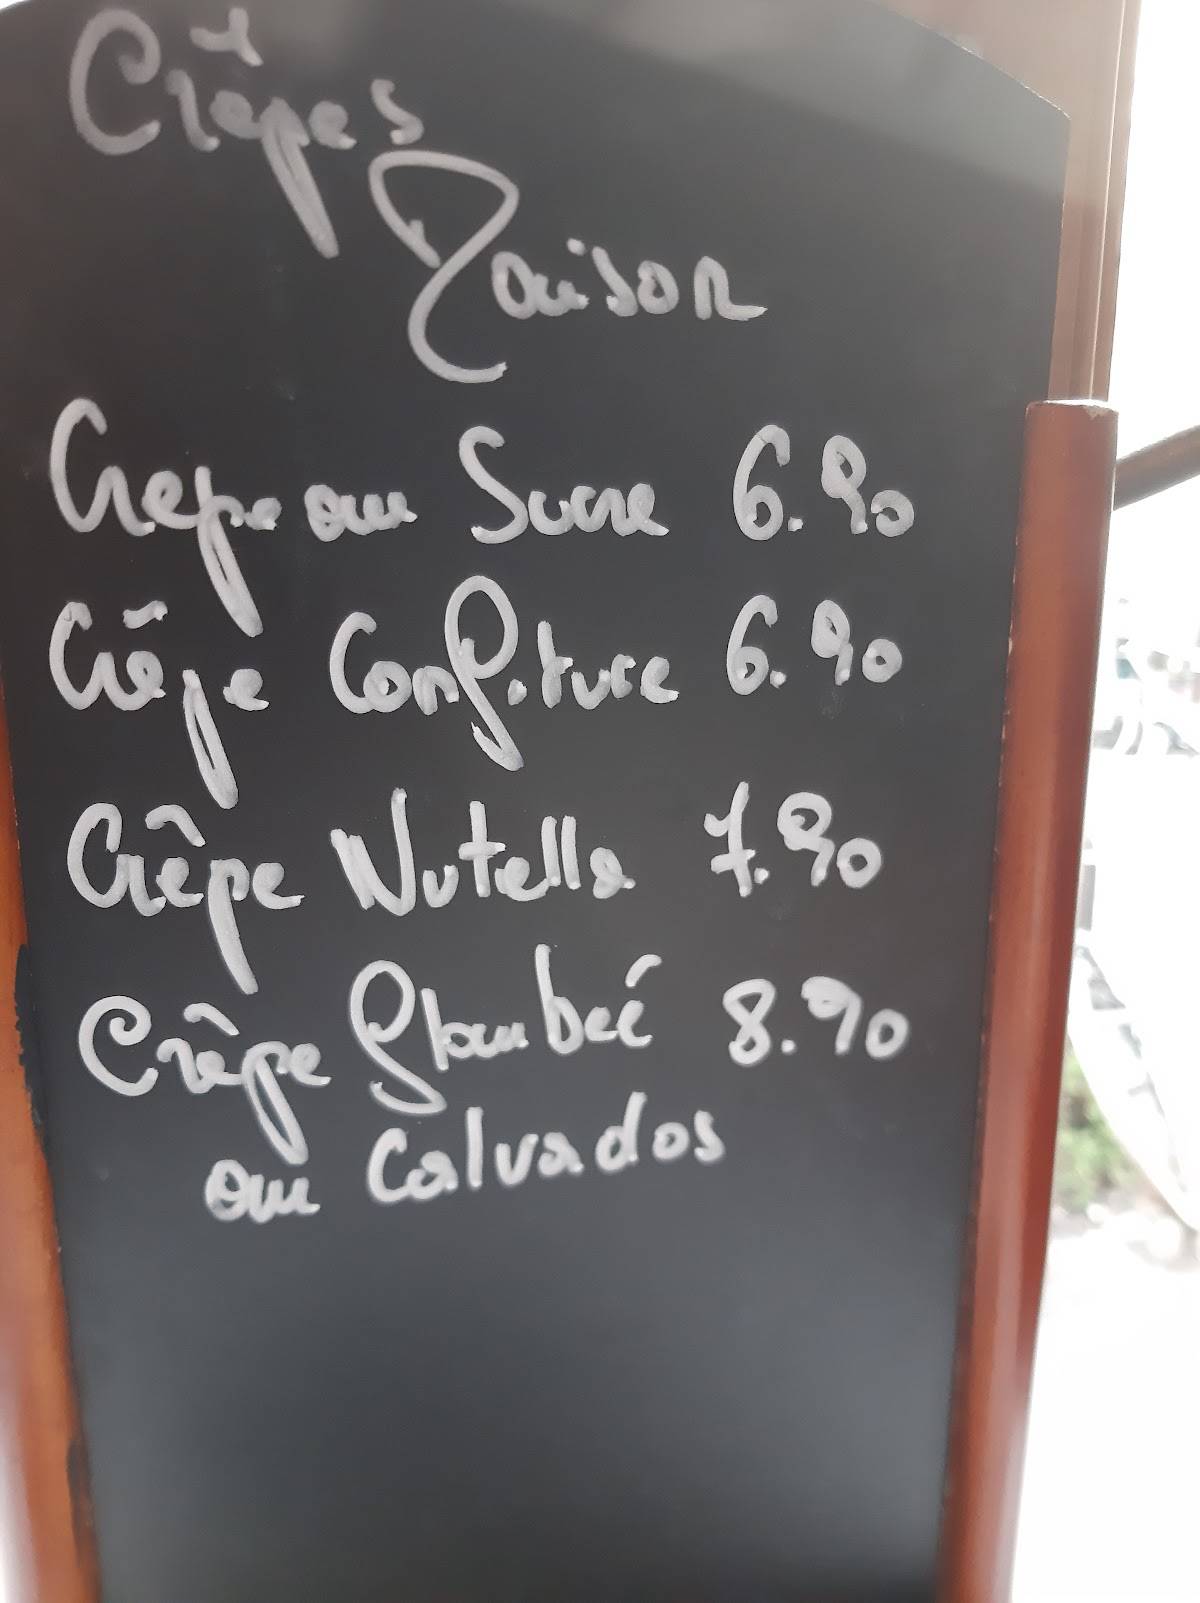 Crêpes
Maison
Crepe au Sucre 6.90
Crêpe Confiture 6.90
Crêpe Nutella 7.90
Crêpe flambeé 8.90
au Calvados